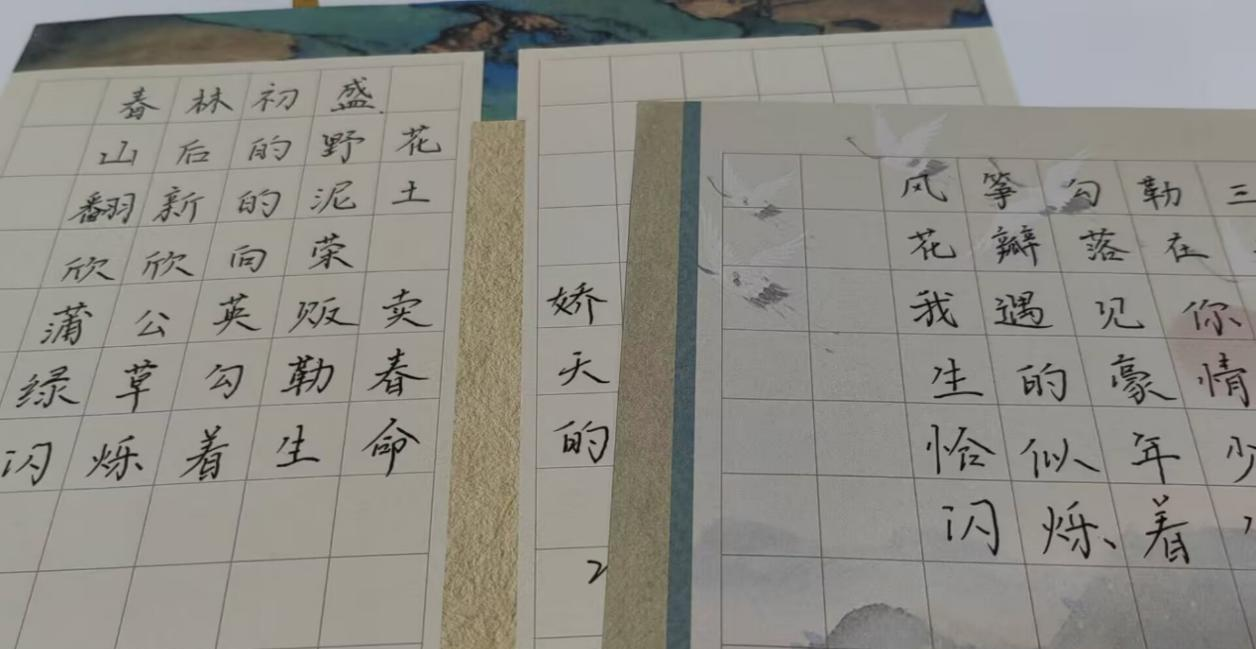 春林初盛
山后的野花
翻新的泥土
欣欣向荣
蒲公英贩卖
绿草勾勒春
闪烁着生命
娇
天
的
风筝勾勒三
花瓣落在
我遇见你
生的豪情
恰似年少
闪烁着